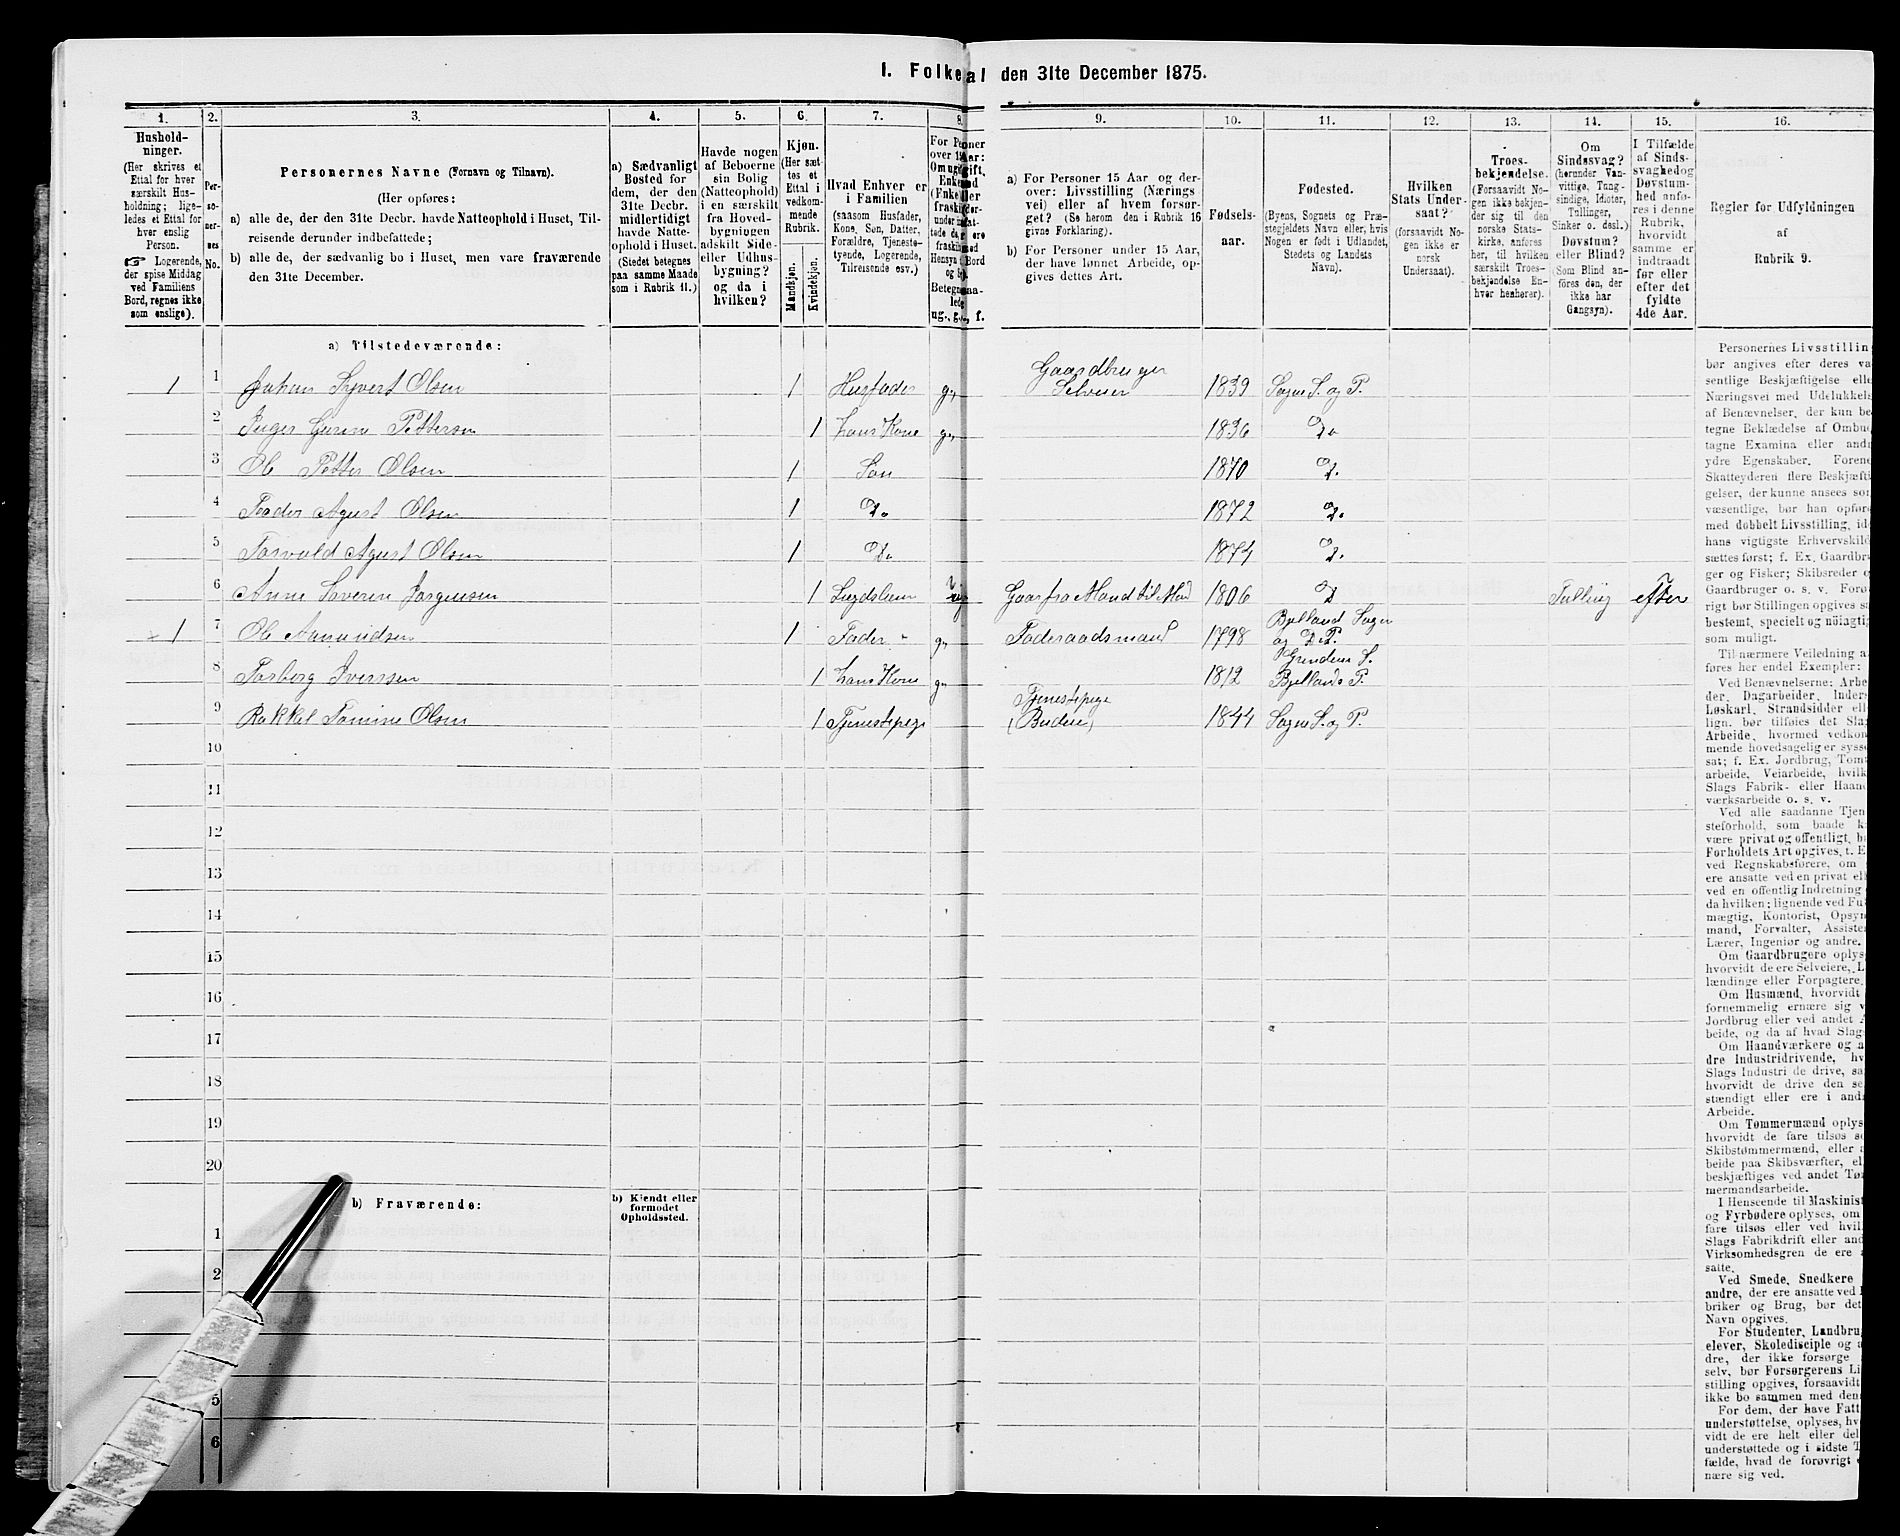 1. Folketal den 31te December 1875.
1. 2. 3. 4. 5. 6. 7. 8. 9. 10. 11. 12. 13. 14. 15. 16.
Hushold-
ninger.
(Her skrives et
Ettal for hver
særskilt Hus-
holdning; lige-
ledes et Ettal for
hver enslig
Person.
☞ Logerende,
der spise Middag
ved Familiens
Bord, regnes ikke
som enslige).
Per-
so-
ner-
nes
No.
Personernes Navne (Fornavn og Tilnavn).
(Her opføres:
a) alle de, der den 31te Decbr. havde Natteophold i Huset, Til-
reisende derunder indbefattede;
b) alle de, der sædvanlig bo i Huset, men vare fraværende
den 31te December.
a) Sædvanligt
Bosted for
dem, der den
31te Decbr.
midlertidigt
havde Natte-
ophold i Huset.
(Stedet betegnes
paa samme Maade
som i Rubrik 11.)
Havde nogen
af Beboerne
sin Bolig
(Natteophold)
i en særskilt
fra Hoved-
bygningen
adskilt Side-
eller Udhus-
bygning?
og da i
hvilken?
Kjøn.
(Her sæt-
tes et
Ettal i
vedkom-
mende
Rubrik.
Mandkjøn.
Kvindekjøn.
Hvad Enhver er
i Familien
(saasom Husfader,
Kone, Søn, Datter,
Forældre, Tjeneste-
tyende, Logerende,
Tilreisende osv.)
ug., g., f.
a) For Personer 15 Aar og der-
over: Livsstilling (Nærings
vei) eller af hvem forsør-
get? (Se herom den i Rubrik 16
givne Forklaring).
b) For Personer under 15 Aar,
der have lønnet Arbeide, op-
gives dettes Art.
Fødsels-
aar.
Fødested.
(Byens, Sognets og Præ-
stegjeldets Navn eller, hvis
Nogen er født i Udlandet,
Stedets og Landets
Navn).
Hvilken
Stats Under-
saat?
(forsaavidt No-
gen ikke er
norsk
Undersaat).
Troes-
bekjendelse.
(Forsaavidt No-
gen ikke bekjen-
der sig til den
norske Stats-
kirke, anføres
her, til hvilken
særskilt Troes-
bekjendelse En-
hver henhører).
Om
Sindssvag?
(herunder Van-
vittige, Tung-
sindige, Idioter,
Tullinger,
Sinker o. desl.)
Døvstum?
eller Blind?
(Som Blind an-
føres den, der
ikke har
Gangsyn).
I Tilfælde
af Sinds-
svaghed og
Døvstum-
hed anfø-
res i denne
Rubrik,
hvorvidt
samme er
indtraadt
før eller
efter det
fyldte
4de Aar.
Regler for Udfyldningen
af
Rubrik 9.
a) Tilstedeværende:
1 1 Johan Syvert Olsen 1 Husfader g. Gaardbruger
Selveier 1839 Sogne S. og P.
2 Inger Gurine Pettersen 1 hans Kone g. 1836 Do
3 Ole Petter Olsen 1 Søn 1870 D.
4 Agust Olsen 1 Do 1872 Do
5 Torvald Agust Olsen 1 Do 1874 Do
6 Anne Severine Jørgensen 1 ug Gaar fra Mand til Mand 1806 D Tulling efter
1 7 Ole Aamundsen 1 Fader g. Føderaadsmand 1798 Bjelland Sogn
og D. P.
8 Torborg Iverssen 1 hans Kone g. 1812 Grindem S.
Bjellands P.
9 Rakkel Tomine Olsen 1 Tjenestepige Tjenestepige
(Budeie) 1844 Sogne S. og P.
10
11
12
13
14
15
16
17
18
19
20
b) Fraværende:
b) Kjendt eller
formodet
Opholdssted.
1
2
5
6
Personernes Livsstillin
bør angives efter deres væ
sentlige Beskjæftigelse elle
Næringsvei med Udelukkels
af Benævnelser, der kun be
tegne Beklædelse af Ombu
tagne Examina eller andr
ydre Egenskaber. Forene
Skatteyderen flere Beskjæfti
gelser, der kunne ansees som
væsentlige, bør han opføre
med dobbelt Livsstilling, id
hans vigtigste Erhvervskild
sættes først; f. Ex. Gaardbru
ger og Fisker; Skibsreder o
Gaardbruger o. s. v. Forø
rigt bør Stillingen opgives sa
bestemt, specielt og nöiagtig
som muligt.
Til nærmere Veiledning a
føres her endel Exempler:
Ved Benævnelserne: Arbe
der, Dagarbeider, Inders
Løskarl, Strandsidder ell
lign. bør tilføies det Slag
Arbeide, hvormed vedkom
mende hovedsagelig er sysse
sat; f. Ex. Jordbrug, Tomt
arbeide, Veiarbeide, hvilk
Slags Fabrik- eller Haand
værksarbeide o. s. v.
Ved alle saadanne Tjen
steforhold, som baade k
være privat og offentligt, b
Forholdets Art opgives, t. E
ved Regnskabsførere, om
ere ansatte ved en privat ell
ved en offentlig Indretning
da hvilken; lignende ved Ful
mægtig, Kontorist, Opsyn
mand, Forvalter, Assisten
Lærer, Ingeniør og andre.
Om Gaardbrugere oplys
hvorvidt de ere Selveiere, L
lændinge eller Forpagtere.
Om Husmænd, hvorvidt
fornemmelig ernære sig v
Jordbrug eller ved andet A
beide, og da af hvad Slag
Om Haandværkere og a
dre Industridrivende, hv
Slags Industri de drive, sa
hvorvidt de drive den se
stændigt eller ere i andr
Arbeide.
Om Tømmermænd oplys
hvorvidt de fare tilsøs so
Skibstømmermænd, eller a
beide paa Skibsværfter, el
beskjæftiges ved andet Tøm
mermandsarbeide.
I Henseende til Maskinist
og Fyrbødere oplyses, om
fare tilsøs eller ved hvil
Slags Fabrikdrift eller and
Virksomhedsgren de ere a
satte.
Ved Smede, Snedkere
andre, der ere ansatte ved
briker og Brug, bør det
Navn opgives.
For Studenter, Landbrug
elever, Skoledisciple og a
dre, der ikke forsørge
selv, bør Forsørgerens Li
stilling opgives, forsaavidt
ikke bo sammen med dem
For dem, der have Fatt
understøttelse, oplyses, hv
vidt de ere helt eller del
understøttede og i sidste T
fælde, hvad de forøvrigt
nære sig ved.